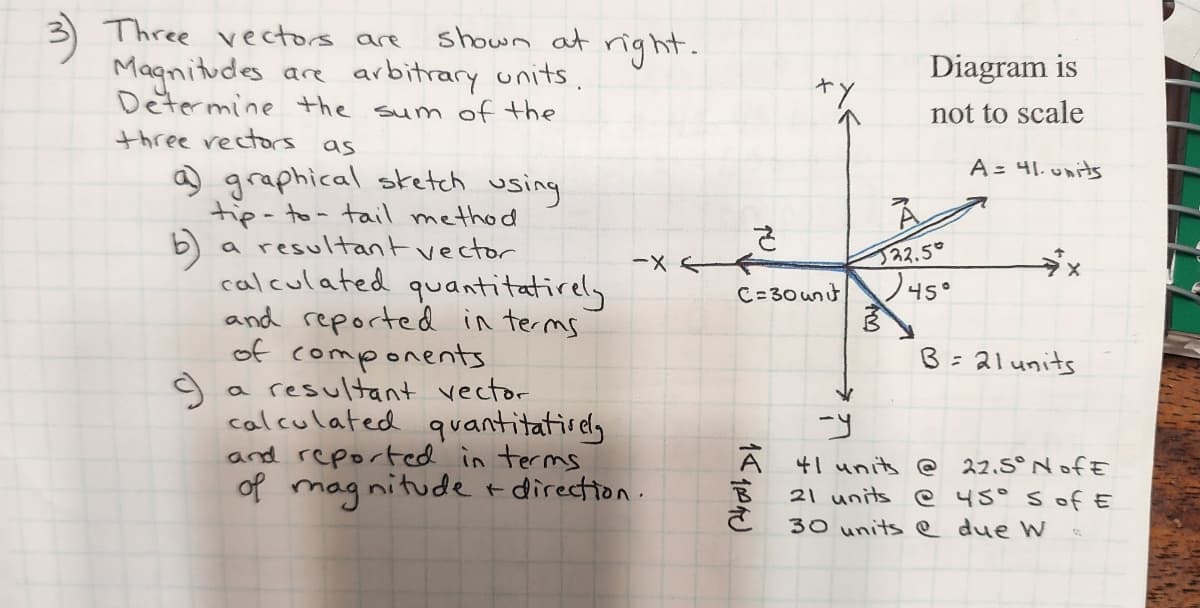 3) Three vectors are shown at right.
Magnitudes are arbitrary units.
Determine the sum of the
three vectors as
a) graphical sketch using
tip-to-tail method
b) a resultant vector
calculated quantitatively
and reported in terms
of components
c) a resultant vector
calculated quantitatively
and reported in terms
of magnitude + direction.
Diagram is
not to scale
+y
A = 41. units
A
22.5°
C
-x
+x
C=30 unit
45°
B
B = 21 units
-y
A 41 units @ 22.5° N of E
B 21 units @ 45° S of E
C 30 units @ due W